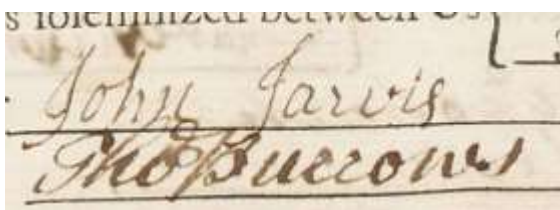 s solemnized between Us
John Jarvis
Thos Burrows